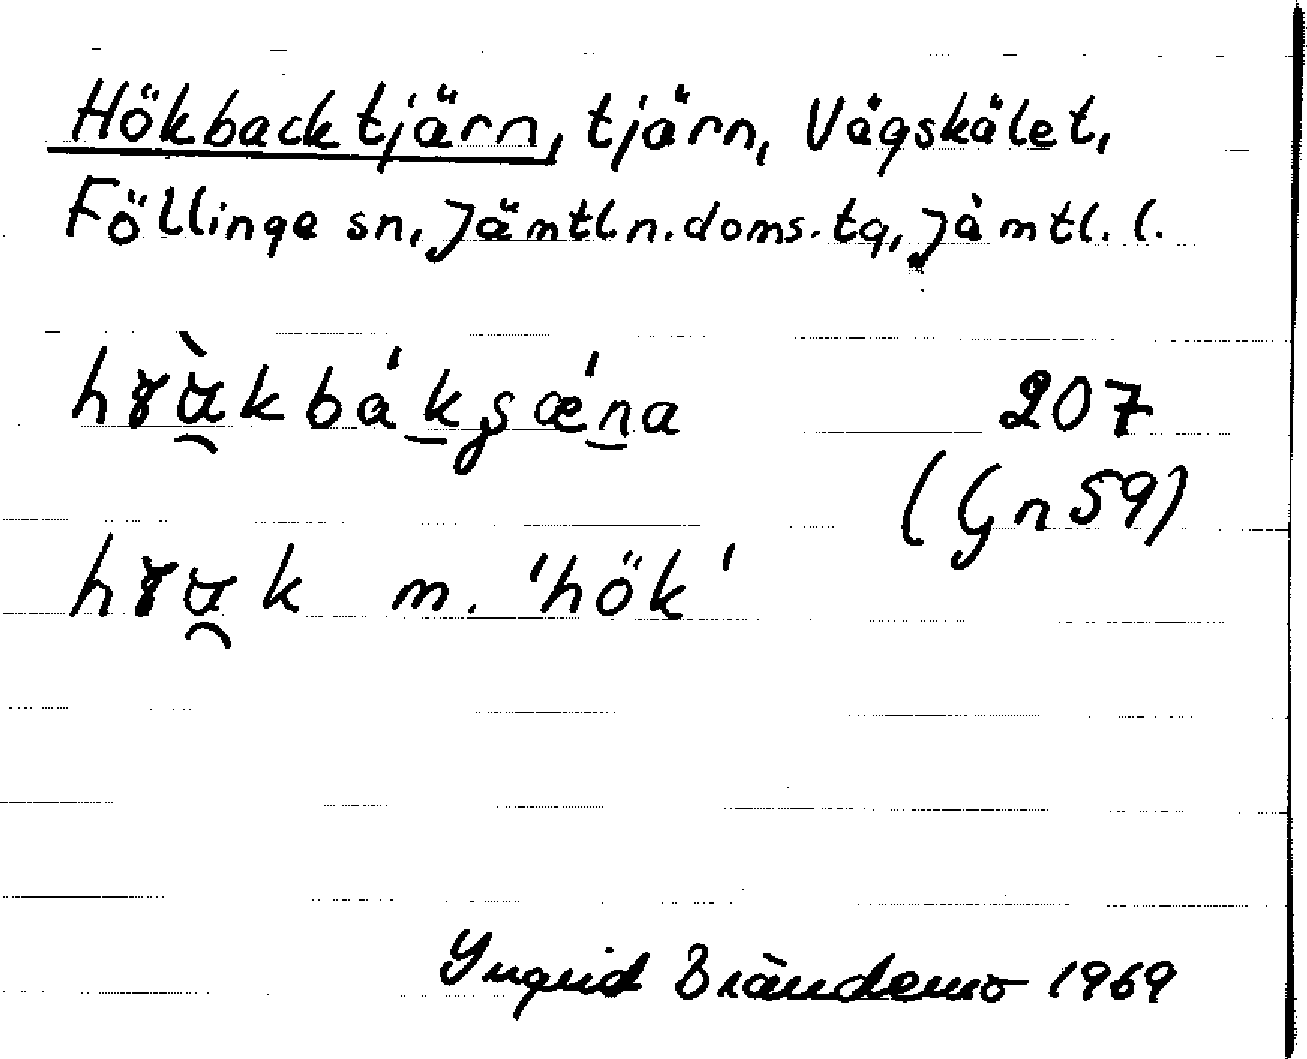 Hökbacktjärn, tjärn, Vågskålet,
Föllinge sn, Jämtl.n.doms.tg, Jämtl. l.
hɤ̀ɑ̯kbákʂǽna 207
(Gn 59)
hɤɑ̯k m. 'hök'
Ingrid Brändemo 1969